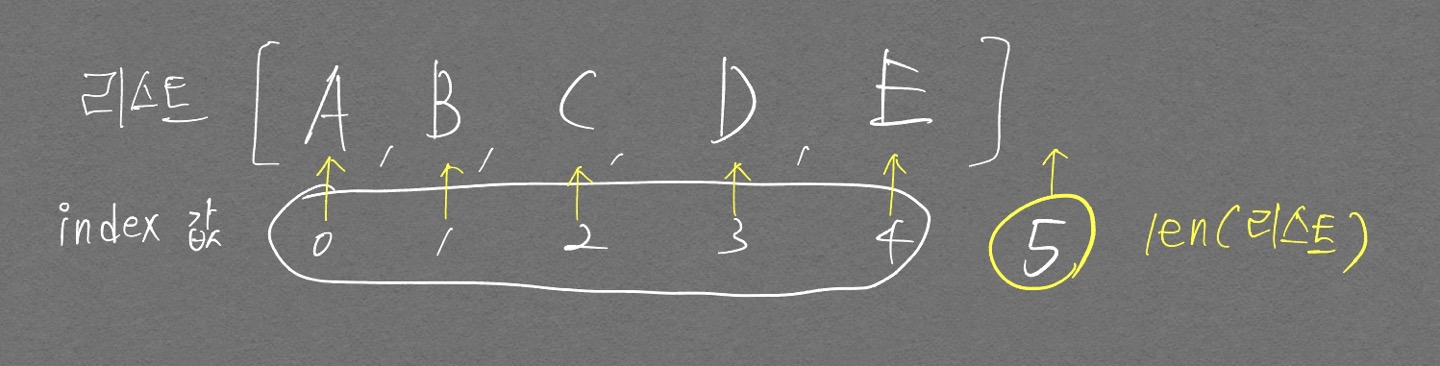 리스트 [A, B, C, D, E]
index 값 0 1 2 3 4 5 len(리스트)